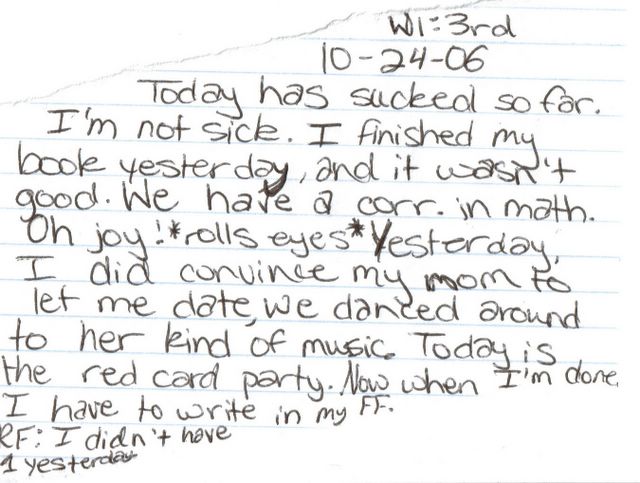 W1:3rd
10-24-06
Today has sucked so far.
I'm not sick. I finished my
book yesterday, and it wasn't
good. We have a corr. in math.
Oh joy! *rolls eyes* Yesterday,
I did convince my mom to
let me date, we danced around
to her kind of music. Today is
the red card party. Now when I'm done
I have to write in my FF.
RF: I didn't have
1 yesterday